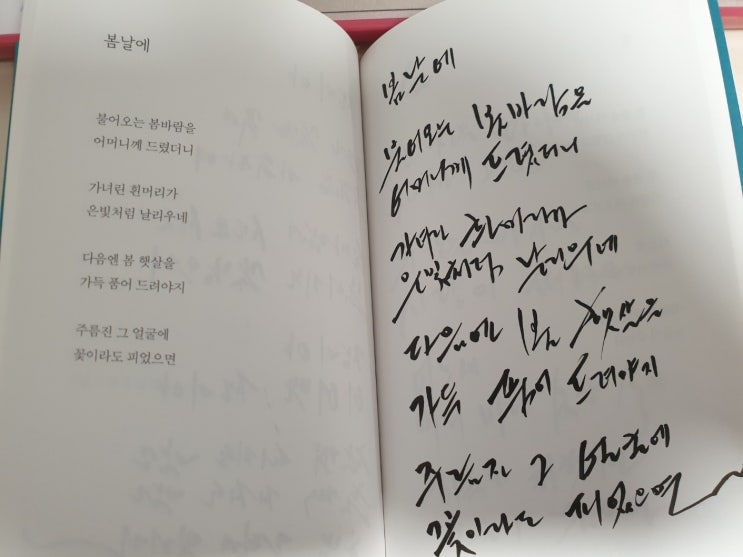 봄날에
불어오는 봄바람을
어머니께 드렸더니
가녀린 흰머리가
은빛처럼 날리우네
다음엔 봄 햇살을
가득 품어 드려야지
주름진 그 얼굴에
꽃이라도 피었으면
봄날에
불어오는 봄바람을
어머니께 드렸더니
가녀린 흰머리가
은빛처럼 날리우네
다음엔 봄 햇살을
가득 품어 드려야지
주름진 그 얼굴에
꽃이라도 피었으면